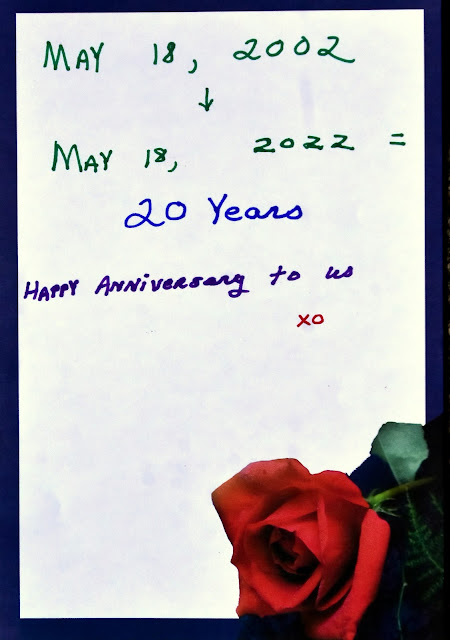 MAY 18, 2002
↓
MAY 18, 2022 =
20 Years
HAPPY ANNiversary to us
xo